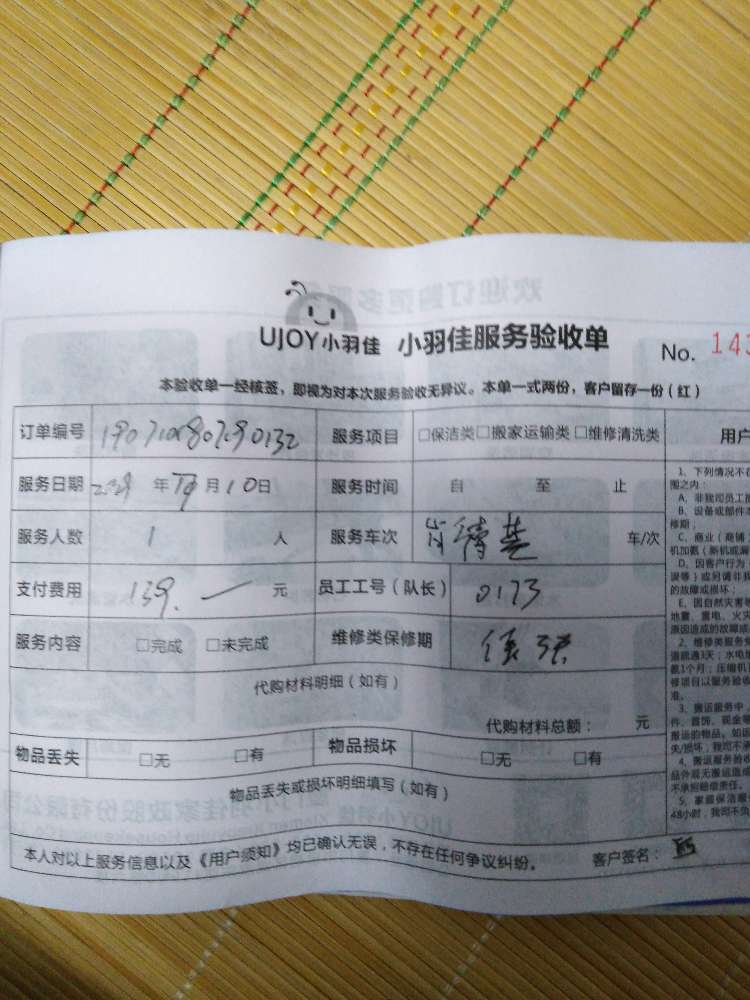 UJOY小羽佳 小羽佳服务验收单 No. 143
本验收单一经核签，即视为对本次服务验收无异议。本单一式两份，客户留存一份（红）
订单编号 服务项目 □保洁类□搬家运输类□维修清洗类 用户
服务日期 年 月 10日 服务时间 自 至 止
服务人数 1 人 服务车次 车/次
支付费用 139. 元 员工工号（队长） 0173
服务内容 □完成 □未完成 维修类保修期
代购材料明细（如有）
代购材料总额： 元
物品丢失 □无 □有 物品损坏 □无 □有
物品丢失或损坏明细填写（如有）
本人对以上服务信息以及《用户须知》均已确认无误，不存在任何争议纠纷。 客户签名：
1、下列情况不在
围之内：
A、非我司员工
B、设备或部件本
修期；
C、商业（商铺）
机加氨（新机或漏
D、因客户行为（
误等）或另请非我
的故障或损坏；
E、因自然灾害
地震、雷电、火灾
原因造成的故障或
2、维修类服务
道疏通3天；水电
氨1个月；压缩机
修项目以服务验收
准。
3、搬运服务中，
件、首饰、现金等
搬运的物品。如运
失/损坏，我司不承
4、搬运服务验收
品外观无搬运造成
不承担赔偿责任。
5、家庭保洁服
48小时，我司不负